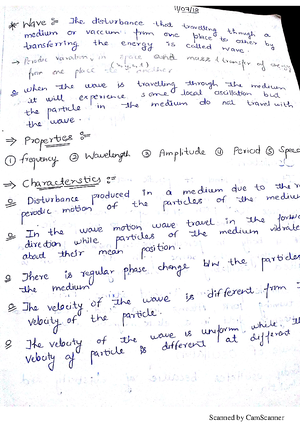 11/07/18
* Wave :- The disturbance that travelling through a
medium or vaccum from one place to other by
transferring the energy is called wave.
→ Periodic variation in space and mass transfer of energy
from one place to another
When the wave is travelling through the medium
it will experience some local oscillation but
the particle in the medium do not travel with
the wave.
⇒ Properties :-
① frequency ② Wavelength ③ Amplitude ④ Period ⑤ Speed
⇒ Characterstics :-
Disturbance produced in a medium due to the re
periodic motion of the particles of the medium
In the wave motion wave travel in the forwa
direction while particles of the medium vibrate
about their mean position.
There is regular phase change b/w the particles
the medium.
The velocity of the wave is different from t
velocity of the particle.
The velocity of the wave is uniform while th
velocity of particle is different at different
Scanned by CamScanner